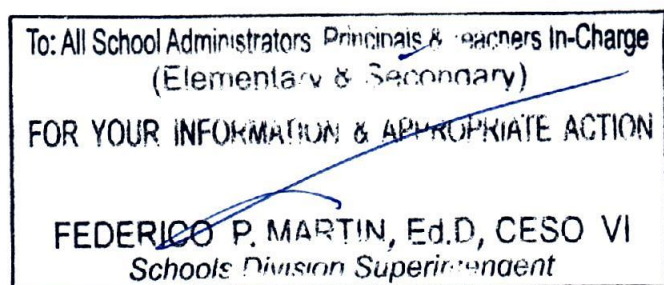 To: All School Administrators Principals & Teachers In-Charge
(Elementary & Secondary)
FOR YOUR INFORMATION & APPROPRIATE ACTION
FEDERICO P. MARTIN, Ed.D, CESO VI
Schools Division Superintendent